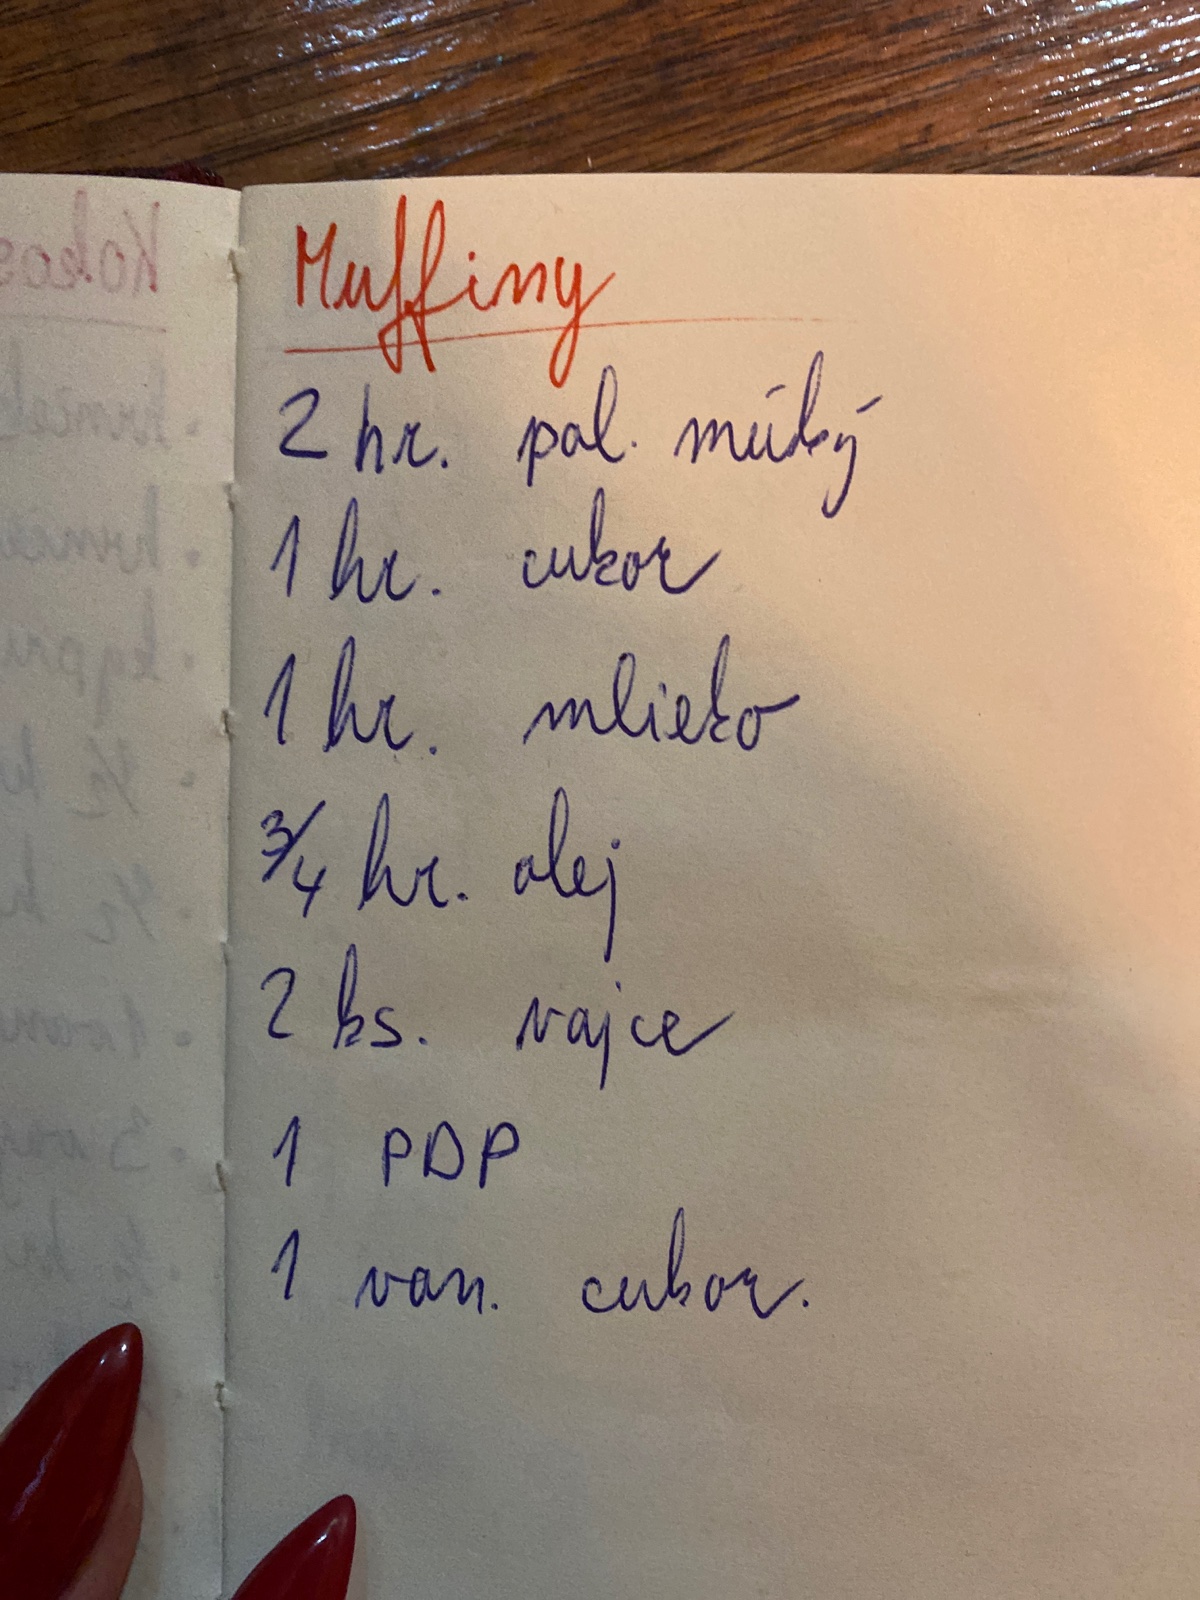 Muffiny
2 hr. pol. múký
1 hr. cukor
1 hr. mlieko
3/4 hr. olej
2 ks. vajce
1 PDP
1 van. cukor.